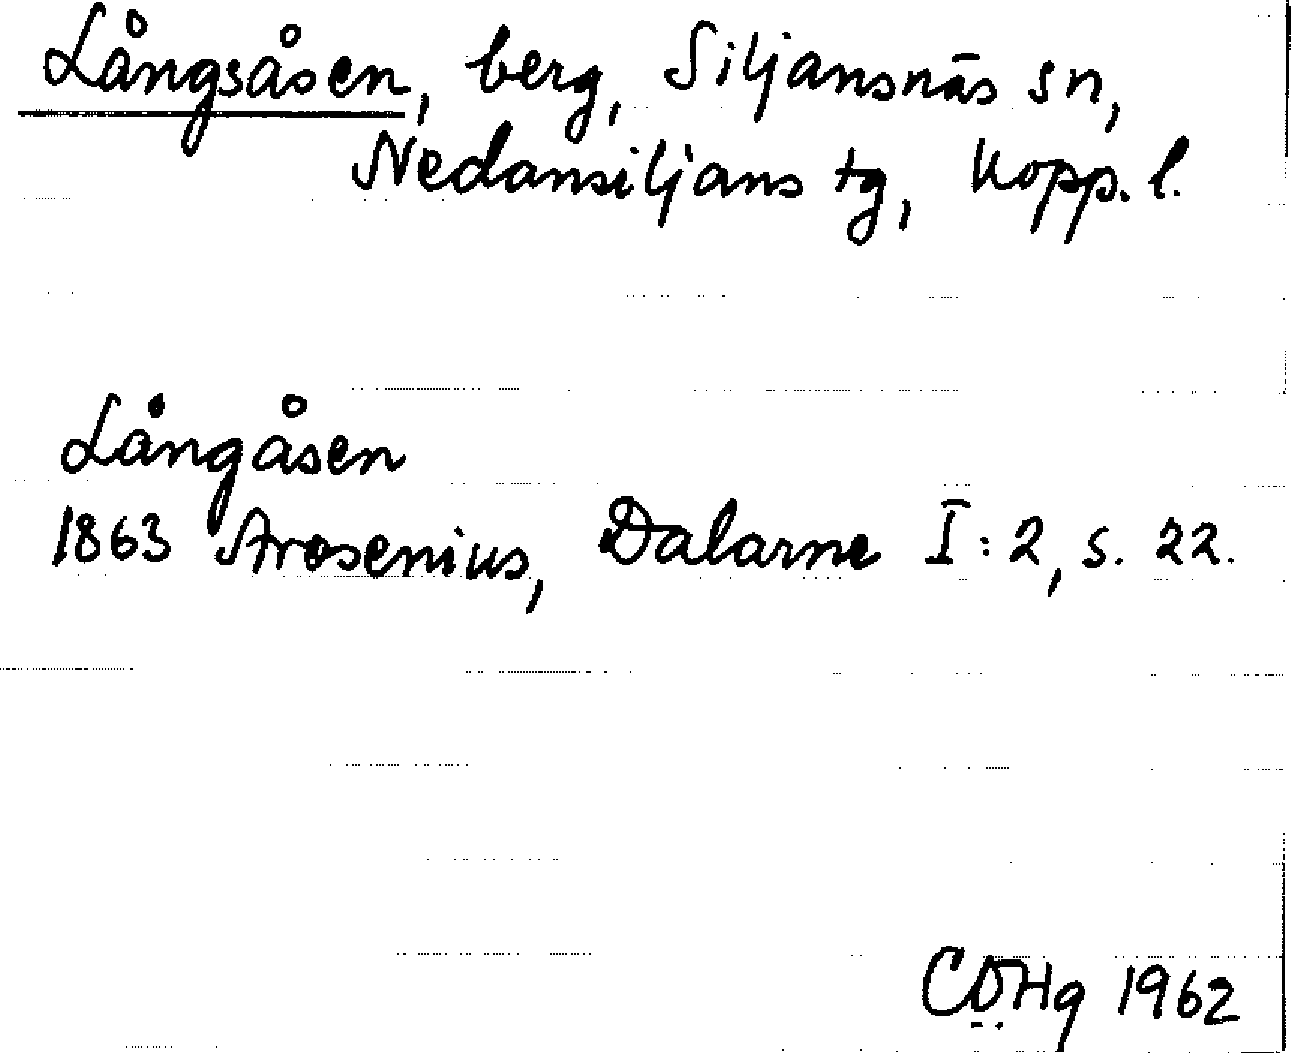 Långsåsen, berg, Siljansnäs sn,
Nedansiljans tg, Kopp. l.
Långåsen
1863 Arosenius, Dalarne I:2, s. 22.
1962